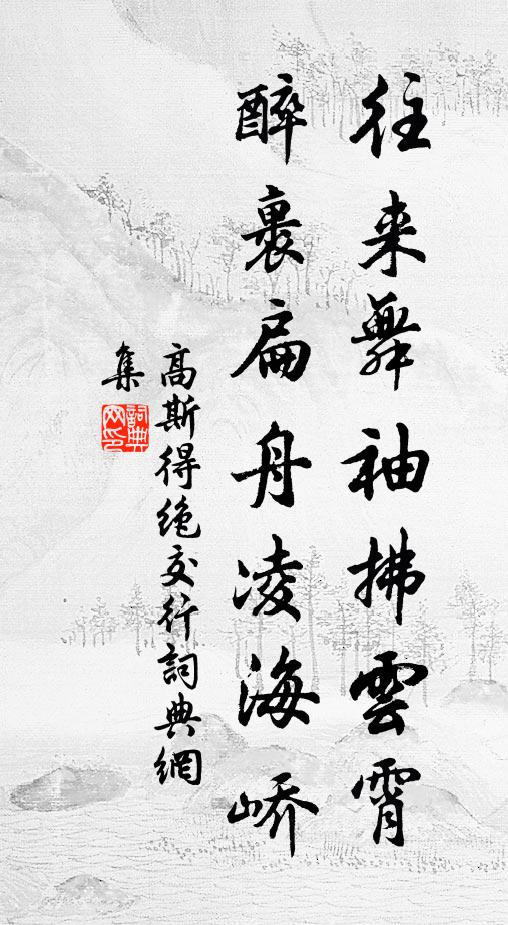 往来舞袖拂雲霄
醉裹扁舟凌海嶠
高斯得絶交行詞典網
集
詞典网印